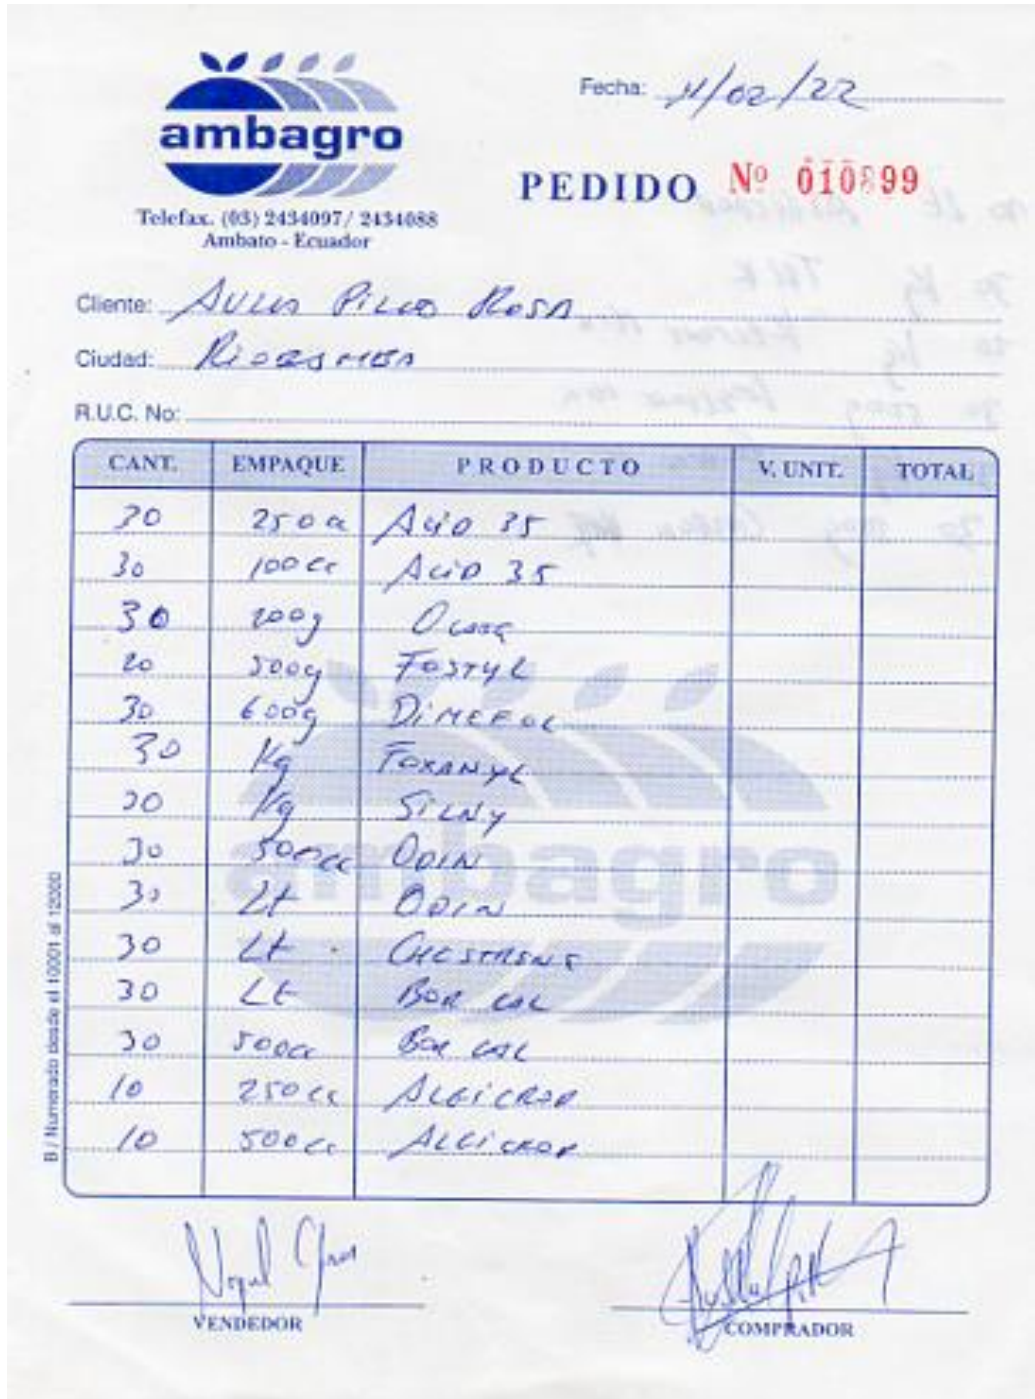 ambagro
Telefax. (03) 2434097/ 2434088
Ambato - Ecuador
Fecha: 11/02/22
PEDIDO Nº 010899
Cliente: Rosa
Ciudad: Riobamba
R.U.C. No:
CANT. EMPAQUE PRODUCTO V. UNIT. TOTAL
20 250cc Acid 35
30 100cc Acid 35
30 200g
20 500g Fostyl
30 600g DIMEFOL
30 Kg FOXANYL
20 Kg SILNY
30 500cc ODIN
30 Lt ODIN
30 Lt
30 Lt BOR CAL
30 500cc Bor CAL
10 250cc ALGICROP
10 500cc ALGICROP
ambagro
B / Numerado desde el 10001 al 12000
VENDEDOR
COMPRADOR